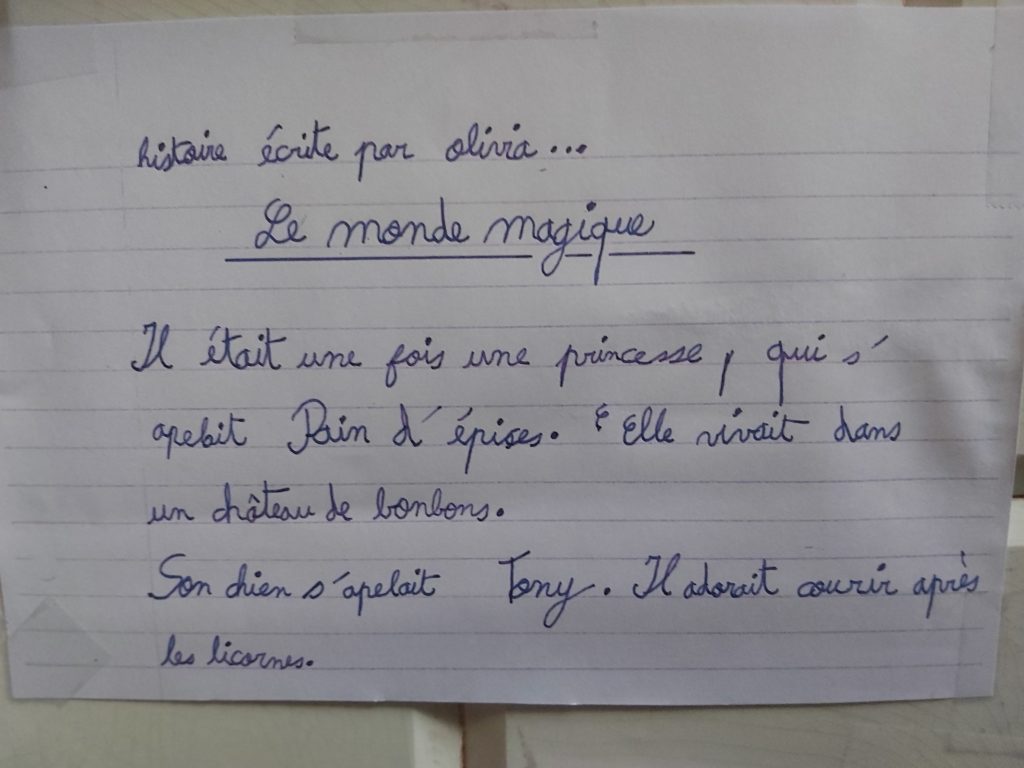 histoire écrite par olivia...
Le monde magique
Il était une fois une princesse, qui s'
apelait Pain d'épices. Elle vivait dans
un château de bonbons.
Son chien s'apelait Tony. Il adorait courir après
les licornes.